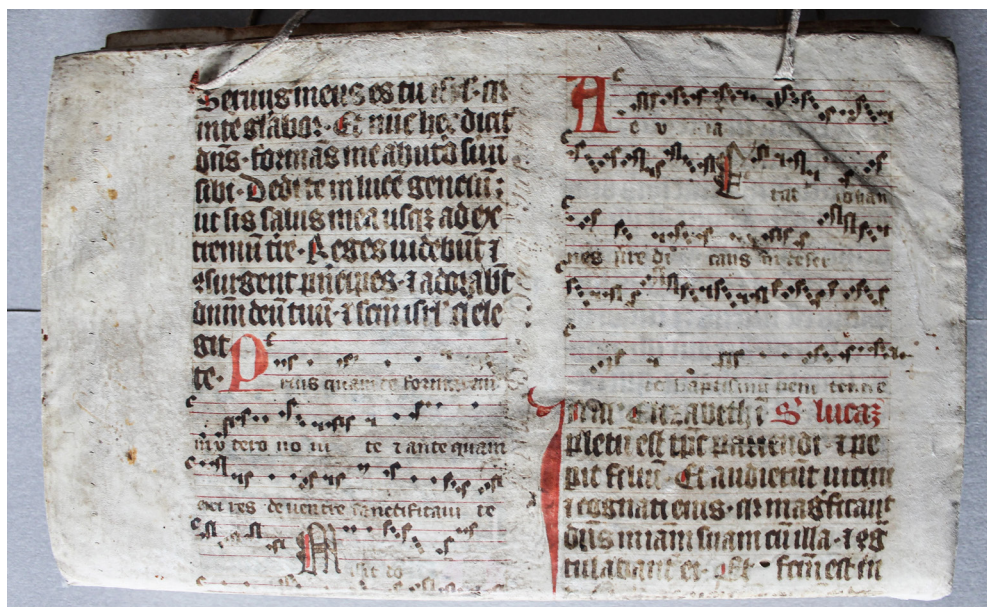 Servus meus es tu isrl. q̄ in
in te glābor. Et nūc hec dicit
dn̄s. formās me ab uto suū
sibi. Dedi te in lucē genciū:
ut sis salus mea usq; ad ex
tremū tre. Reges videbūt ⁊
ɔsurgent p̄ncipes. ⁊ adorabūt
dn̄m deū tuū. ⁊ scm̄ isrl. q̄ ele
git
te. Prius quam te formarem
in utero no ui te ⁊ ante quam
exi res de ventre sanctificavi te
Misit do
A e v ia
Fuit iohan
nes in de di cans in deser
to baptismū peni tencie
Elizabeth ī S. lucaz
pletū est tp̄c pariendi. ⁊ pe
pit filiū. Et audierūt vicini
⁊ cognati eius. q̄ magficavit
dn̄s miam suam cū illa. ⁊ ɔg
tulabant ei. ⁊ fcm̄ est in